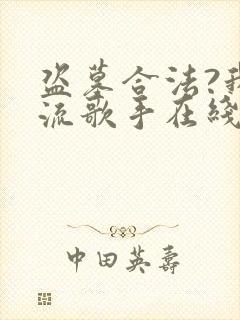 盗墓合法?我
流歌手在线
中田英寿